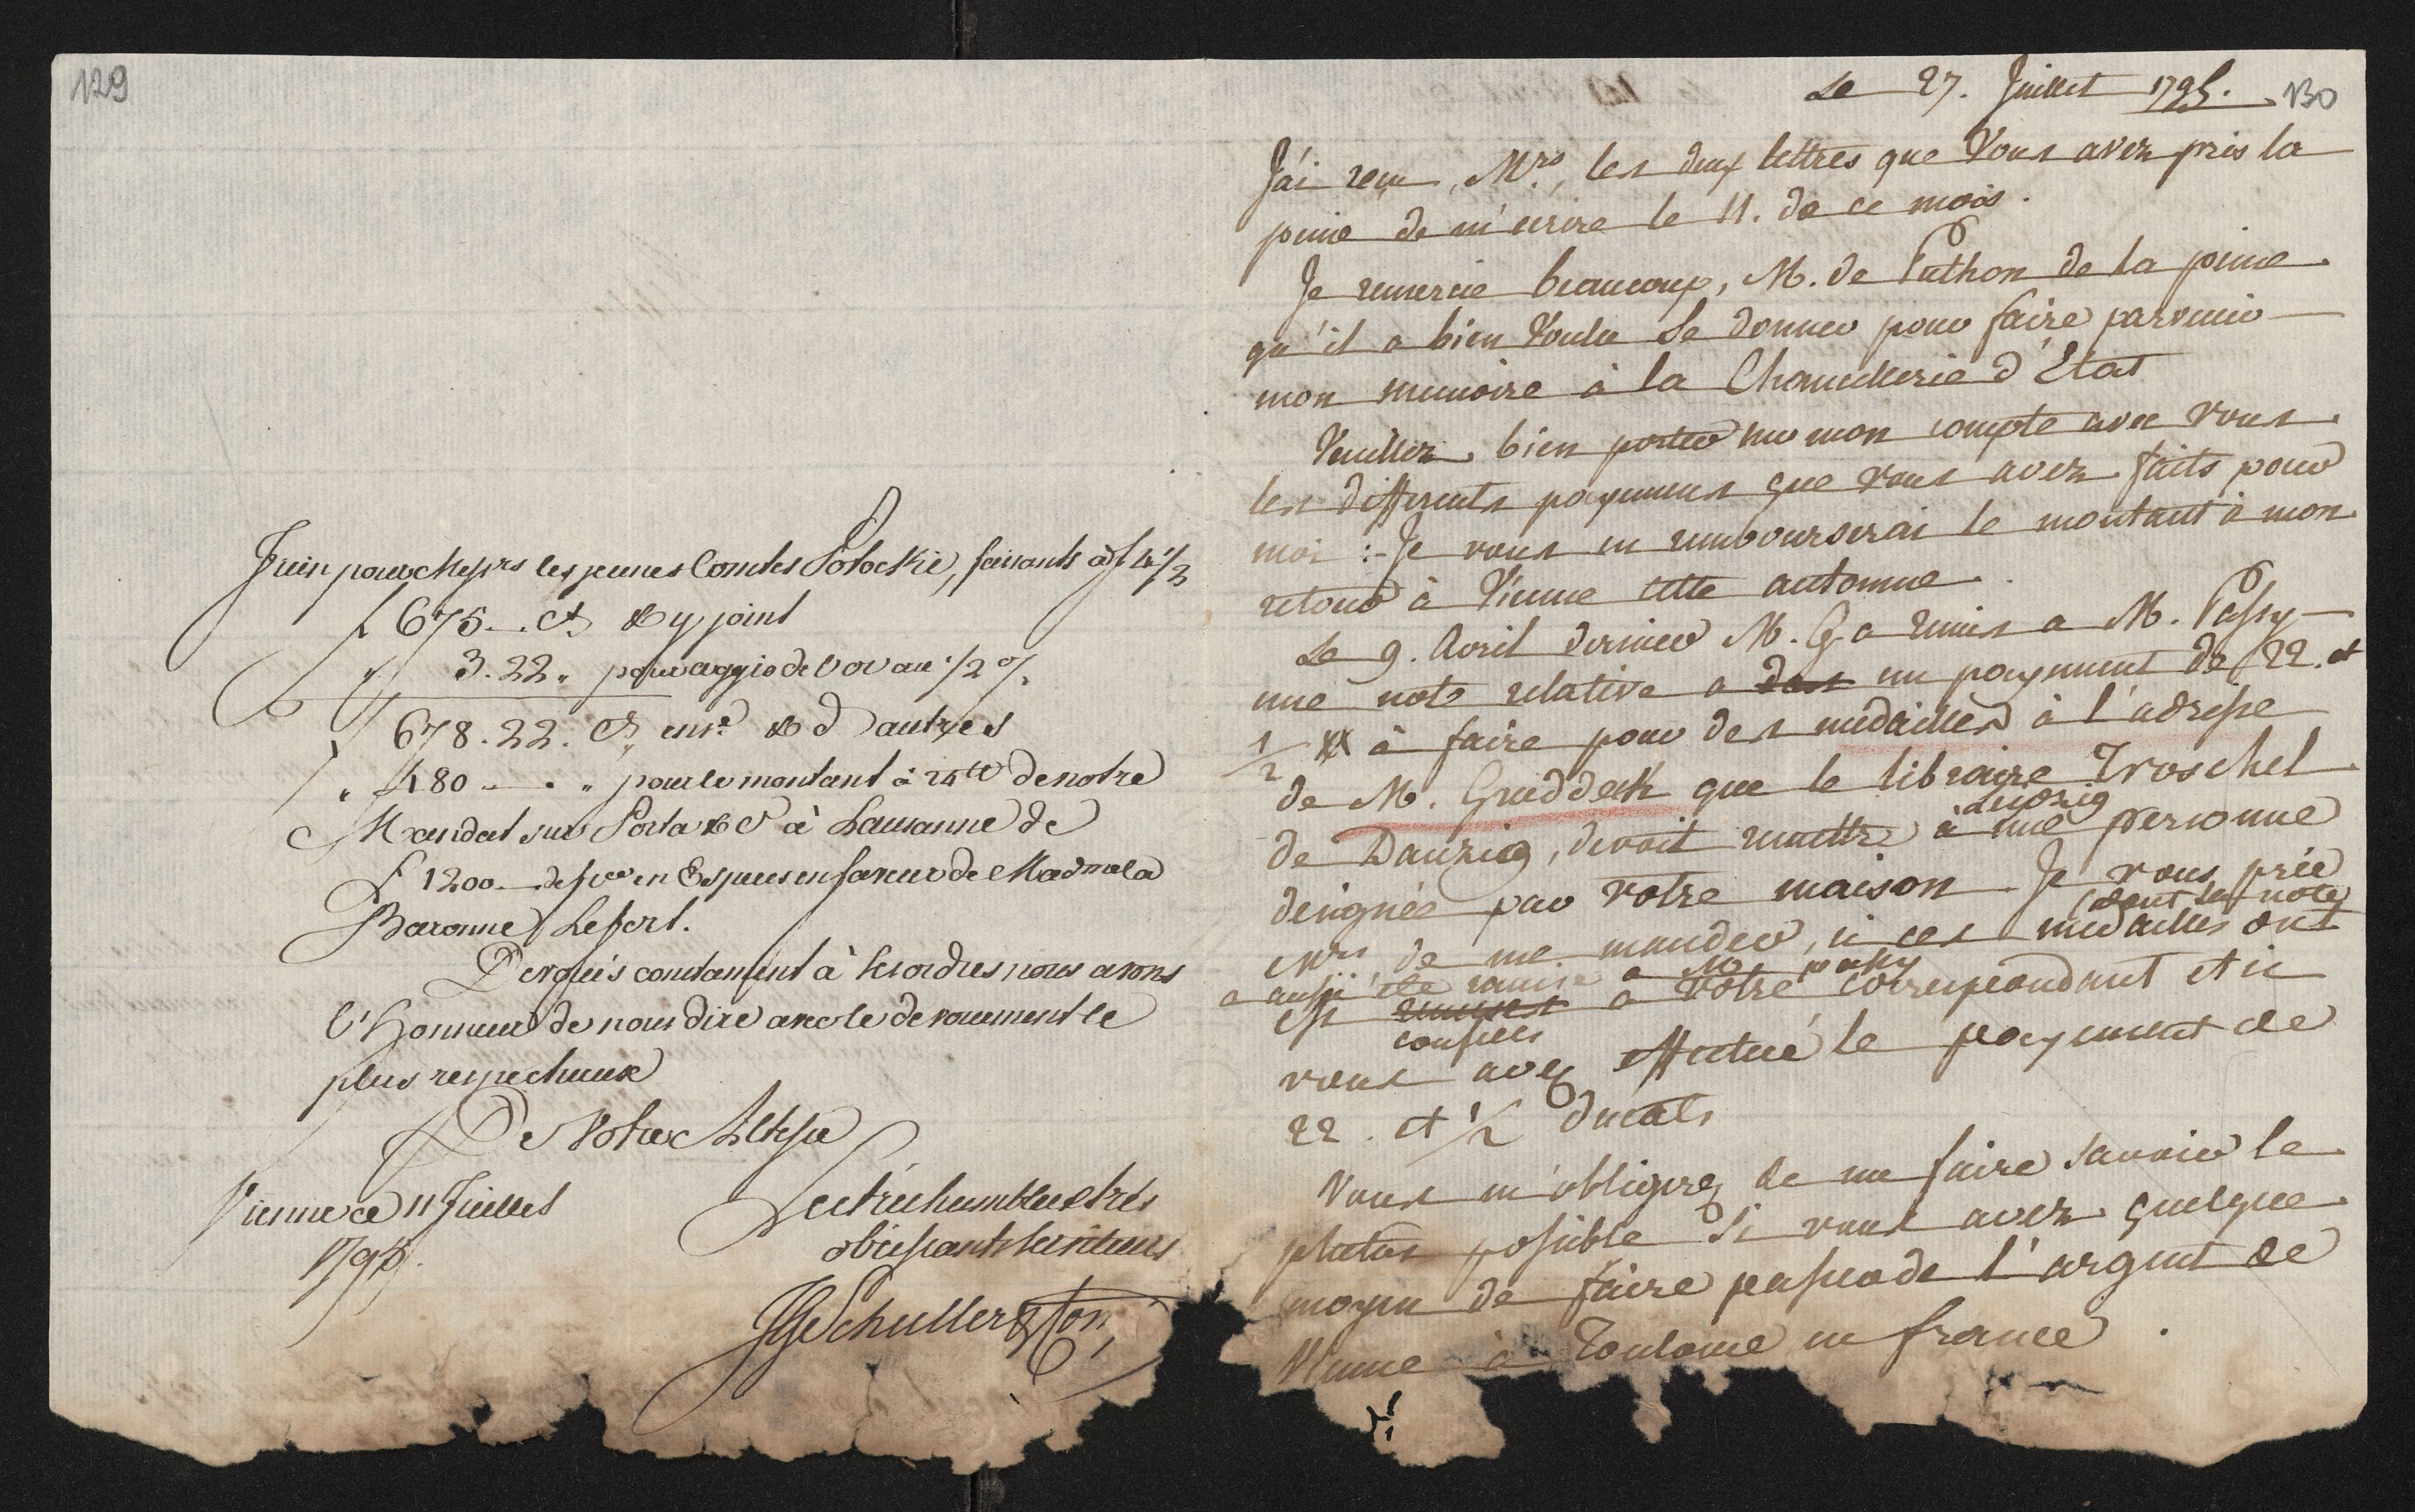 129
Juin pour Messrs les jeunes Comtes Potockie, faisants à f 4 1/2
f 675._. Ct. & y joint
" 3.22 " pour aggio de l'or au 1/2 %
f 678.22. Ct ens.e & d'autres
" 480 _ . " pour le montant à 24 de notre
Mandat sur Porta & C à Lausanne de
L 1200._ de Fce en Especes en faveur de Madme la
Baronne Lefort.
Devoués constament à Ses ordres nous avons
l'Honneur de nous dire avec le devouement le
plus respectueux
De Votre Altesse
Vienne ce 11 Juillet
1795.
Les très humbles & très
obéissants Serviteurs
JG Schuller & Con,
Le 27. Juillet 1795. 130
J'ai reçu, Mrs, les deux lettres que Vous avez pris la
peine de m'écrire le 11. de ce mois.
Je remercie beaucoup, M. de Puthon de la peine
qu'il a bien Voulu Se donner pour faire parvenir
mon memoire à la Chancellerie d'Etat
Veuillez bien porter sur mon compte avec Vous
les differents payemens que Vous avez faits pour
moi :- Je vous en rembourserai le montant à mon
retour à Vienne cette automne.
Le 9. Avril dernier M. G. a remis a M. Passy
une note relative a des un payement de 22. et
1/2 # à faire pour des medailles à l'adresse
de M. Graddeck que le libraire Troschel
Leipzig
de Danzig, devoit remettre à une personne
designée par Votre maison Je vous prie
(dont la note
Mrs de me mander, si ces medailles ont
a aussi été remise a M. Passy
été remises a Votre correspondant et si
confiées
vous avez effectué le payement de
22. et 1/2 ducats
Vous m'obligerez de me faire savoir le
plutot possible Si vous avez quelque
moyen de faire passer de l'argent de
Vienne à Toulouse en france.